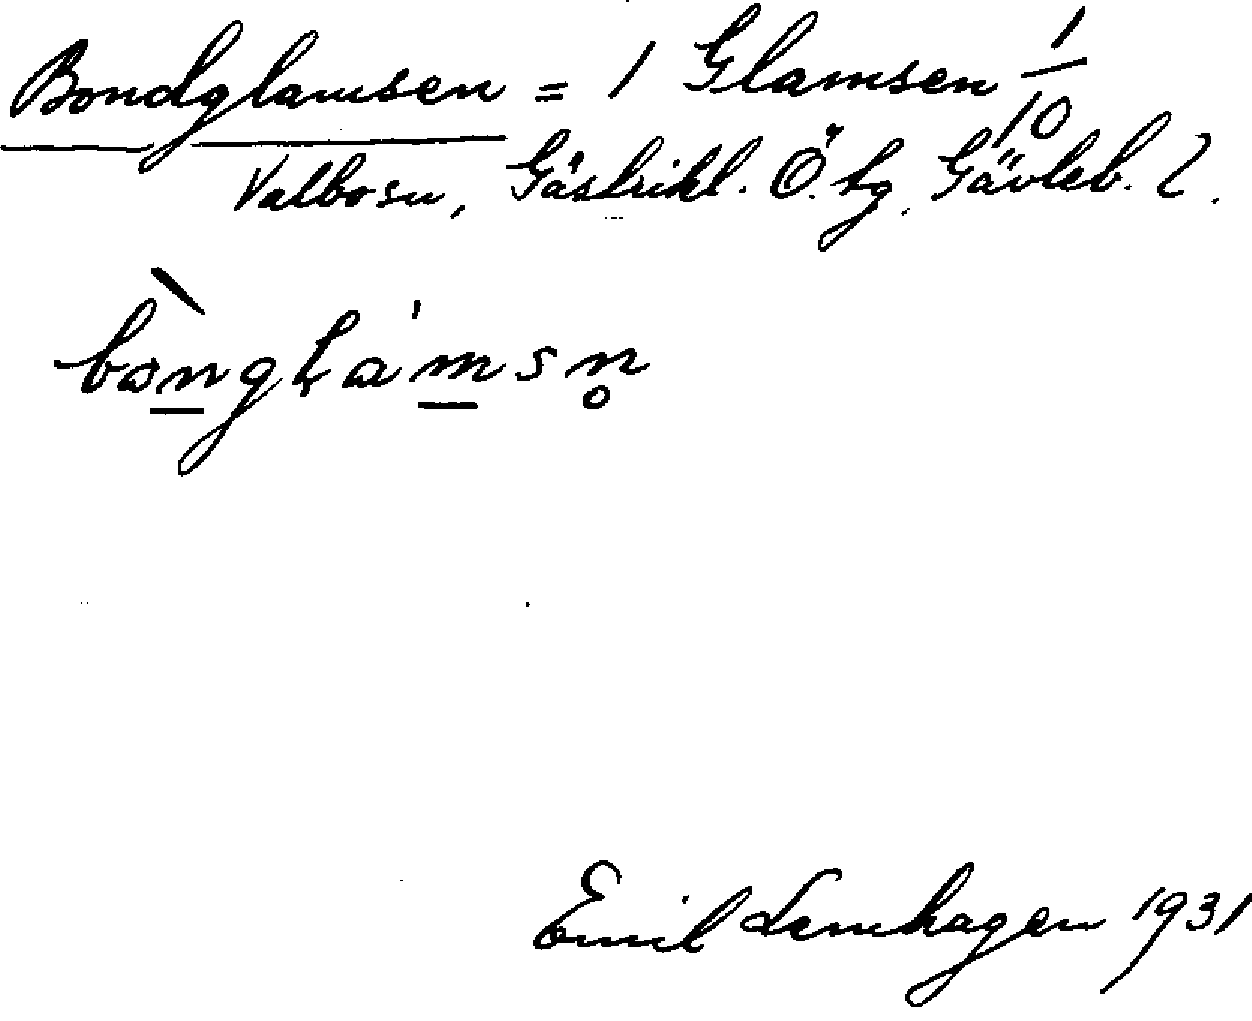 Bondglamsen = 1 Glamsen 1/10
Valbo sn, Gästrikl. Ö. tg. Gävleb. L.
bòngɫàmsn̥
Emil Lennhagen 1931